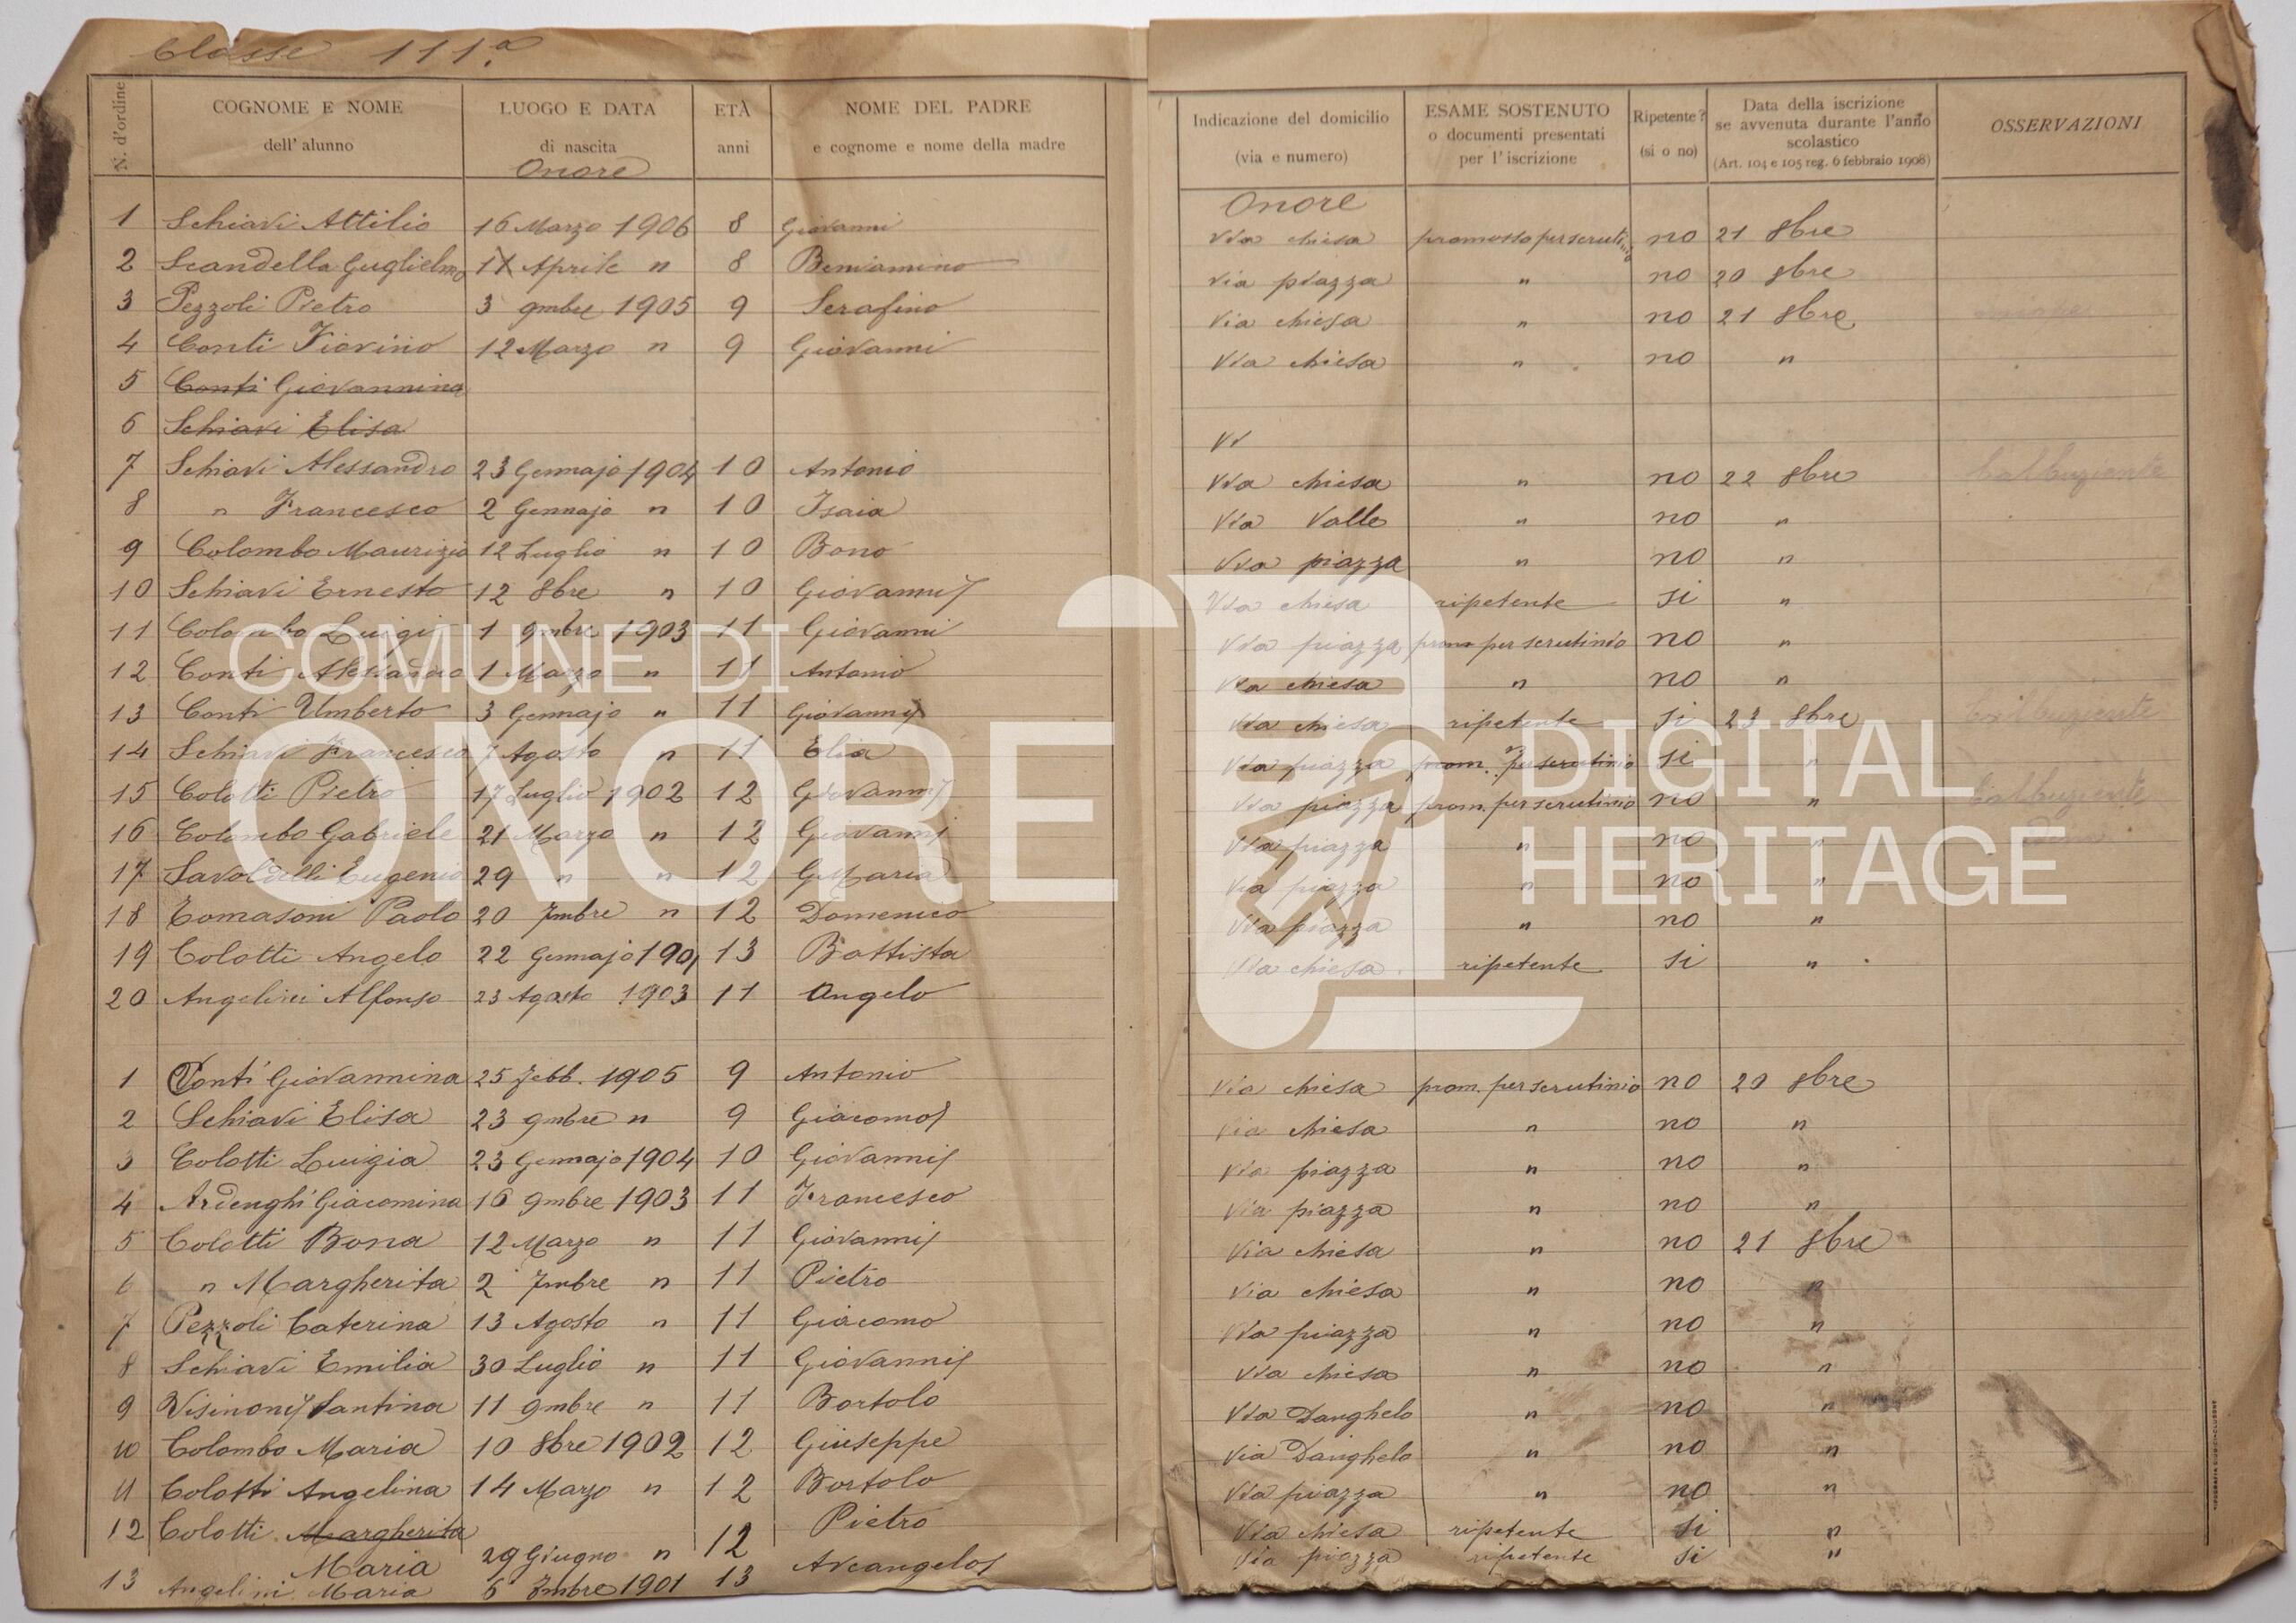 Classe 111.a
N. d'ordine
COGNOME E NOME
dell' alunno
LUOGO E DATA
di nascita
Onore
ETÀ
anni
NOME DEL PADRE
e cognome e nome della madre
Indicazione del domicilio
(via e numero)
ESAME SOSTENUTO
o documenti presentati
per l'iscrizione
Ripetente?
(si o no)
Data della iscrizione
se avvenuta durante l'anño
scolastico
(Art. 104 e 105 reg. 6 febbraio 1908)
OSSERVAZIONI
Onore
1 Schiavi Attilio 16 Marzo 1906 8 Giovanni Via chiesa promosso per scrutinio no 21 8bre
2 Scandella Guglielmo Aprile " 8 Beniamino via piazza " no 20 8bre
3 Pezzoli Pietro 3 9mbre 1905 9 Serafino Via chiesa " no 21 8bre
4 Conti Fiorino 12 Marzo " 9 Giovanni Via chiesa " no "
5 Conti Giovannina
6 Schiavi Elisa Vi
7 Schiavi Alessandro 23 Gennajo 1904 10 Antonio Via chiesa " no 22 8bre balbuziente
8 " Francesco 2 Gennajo " 10 Isaia Via Valle " no "
9 Colombo Maurizio 12 Luglio " 10 Bono Via piazza " no "
10 Schiavi Ernesto 12 8bre " 10 Giovanni Via chiesa ripetente si "
11 Colombo Luigi 1 9mbre 1903 11 Giovanni Via piazza prom per scrutinio no "
12 Conti Alessandro 1 Marzo " 11 Antonio Via chiesa " no "
13 Conti Umberto 3 Gennajo " 11 Giovanni Via chiesa ripetente si 23 8bre balbuziente
14 Schiavi Francesco 7 Agosto " 11 Elia Via piazza prom. per scrutinio si "
15 Colotti Pietro 17 Luglio 1902 12 Giovanni Via piazza prom. per scrutinio no " balbuziente
16 Colombo Gabriele 21 Marzo " 12 Giovanni Via piazza " no "
17 Savoldelli Eugenio 29 " " 12 G. Maria Via piazza " no "
18 Tomasoni Paolo 20 7mbre " 12 Domenico Via piazza " no "
19 Colotti Angelo 22 Gennajo 1901 13 Battista Via chiesa ripetente si "
20 Angelini Alfonso 23 Agosto 1903 11 Angelo
1 Conti Giovannina 25 Febb. 1905 9 Antonio Via chiesa prom. per scrutinio no 20 8bre
2 Schiavi Elisa 23 9mbre " 9 Giacomo Via chiesa " no "
3 Colotti Luigia 23 Gennajo 1904 10 Giovanni Via piazza " no "
4 Ardenghi Giacomina 16 9mbre 1903 11 Francesco Via piazza " no "
5 Colotti Bona 12 Marzo " 11 Giovanni Via chiesa " no 21 8bre
6 " Margherita 2 7mbre " 11 Pietro Via chiesa " no "
7 Pezzoli Caterina 13 Agosto " 11 Giacomo Via piazza " no "
8 Schiavi Emilia 30 Luglio " 11 Giovanni Via chiesa " no "
9 Visinoni Santina 11 9mbre " 11 Bortolo Via Danghelo " no "
10 Colombo Maria 10 8bre 1902 12 Giuseppe Via Danghelo " no "
11 Colotti Angelina 14 Marzo " 12 Bortolo Via piazza " no "
12 Colotti Margherita Maria 29 Giugno " 12 Pietro Via chiesa ripetente si "
13 Angelini Maria 6 1901 13 Arcangelo Via piazza ripetente si "
COMUNE DI
ONORE
DIGITAL
HERITAGE